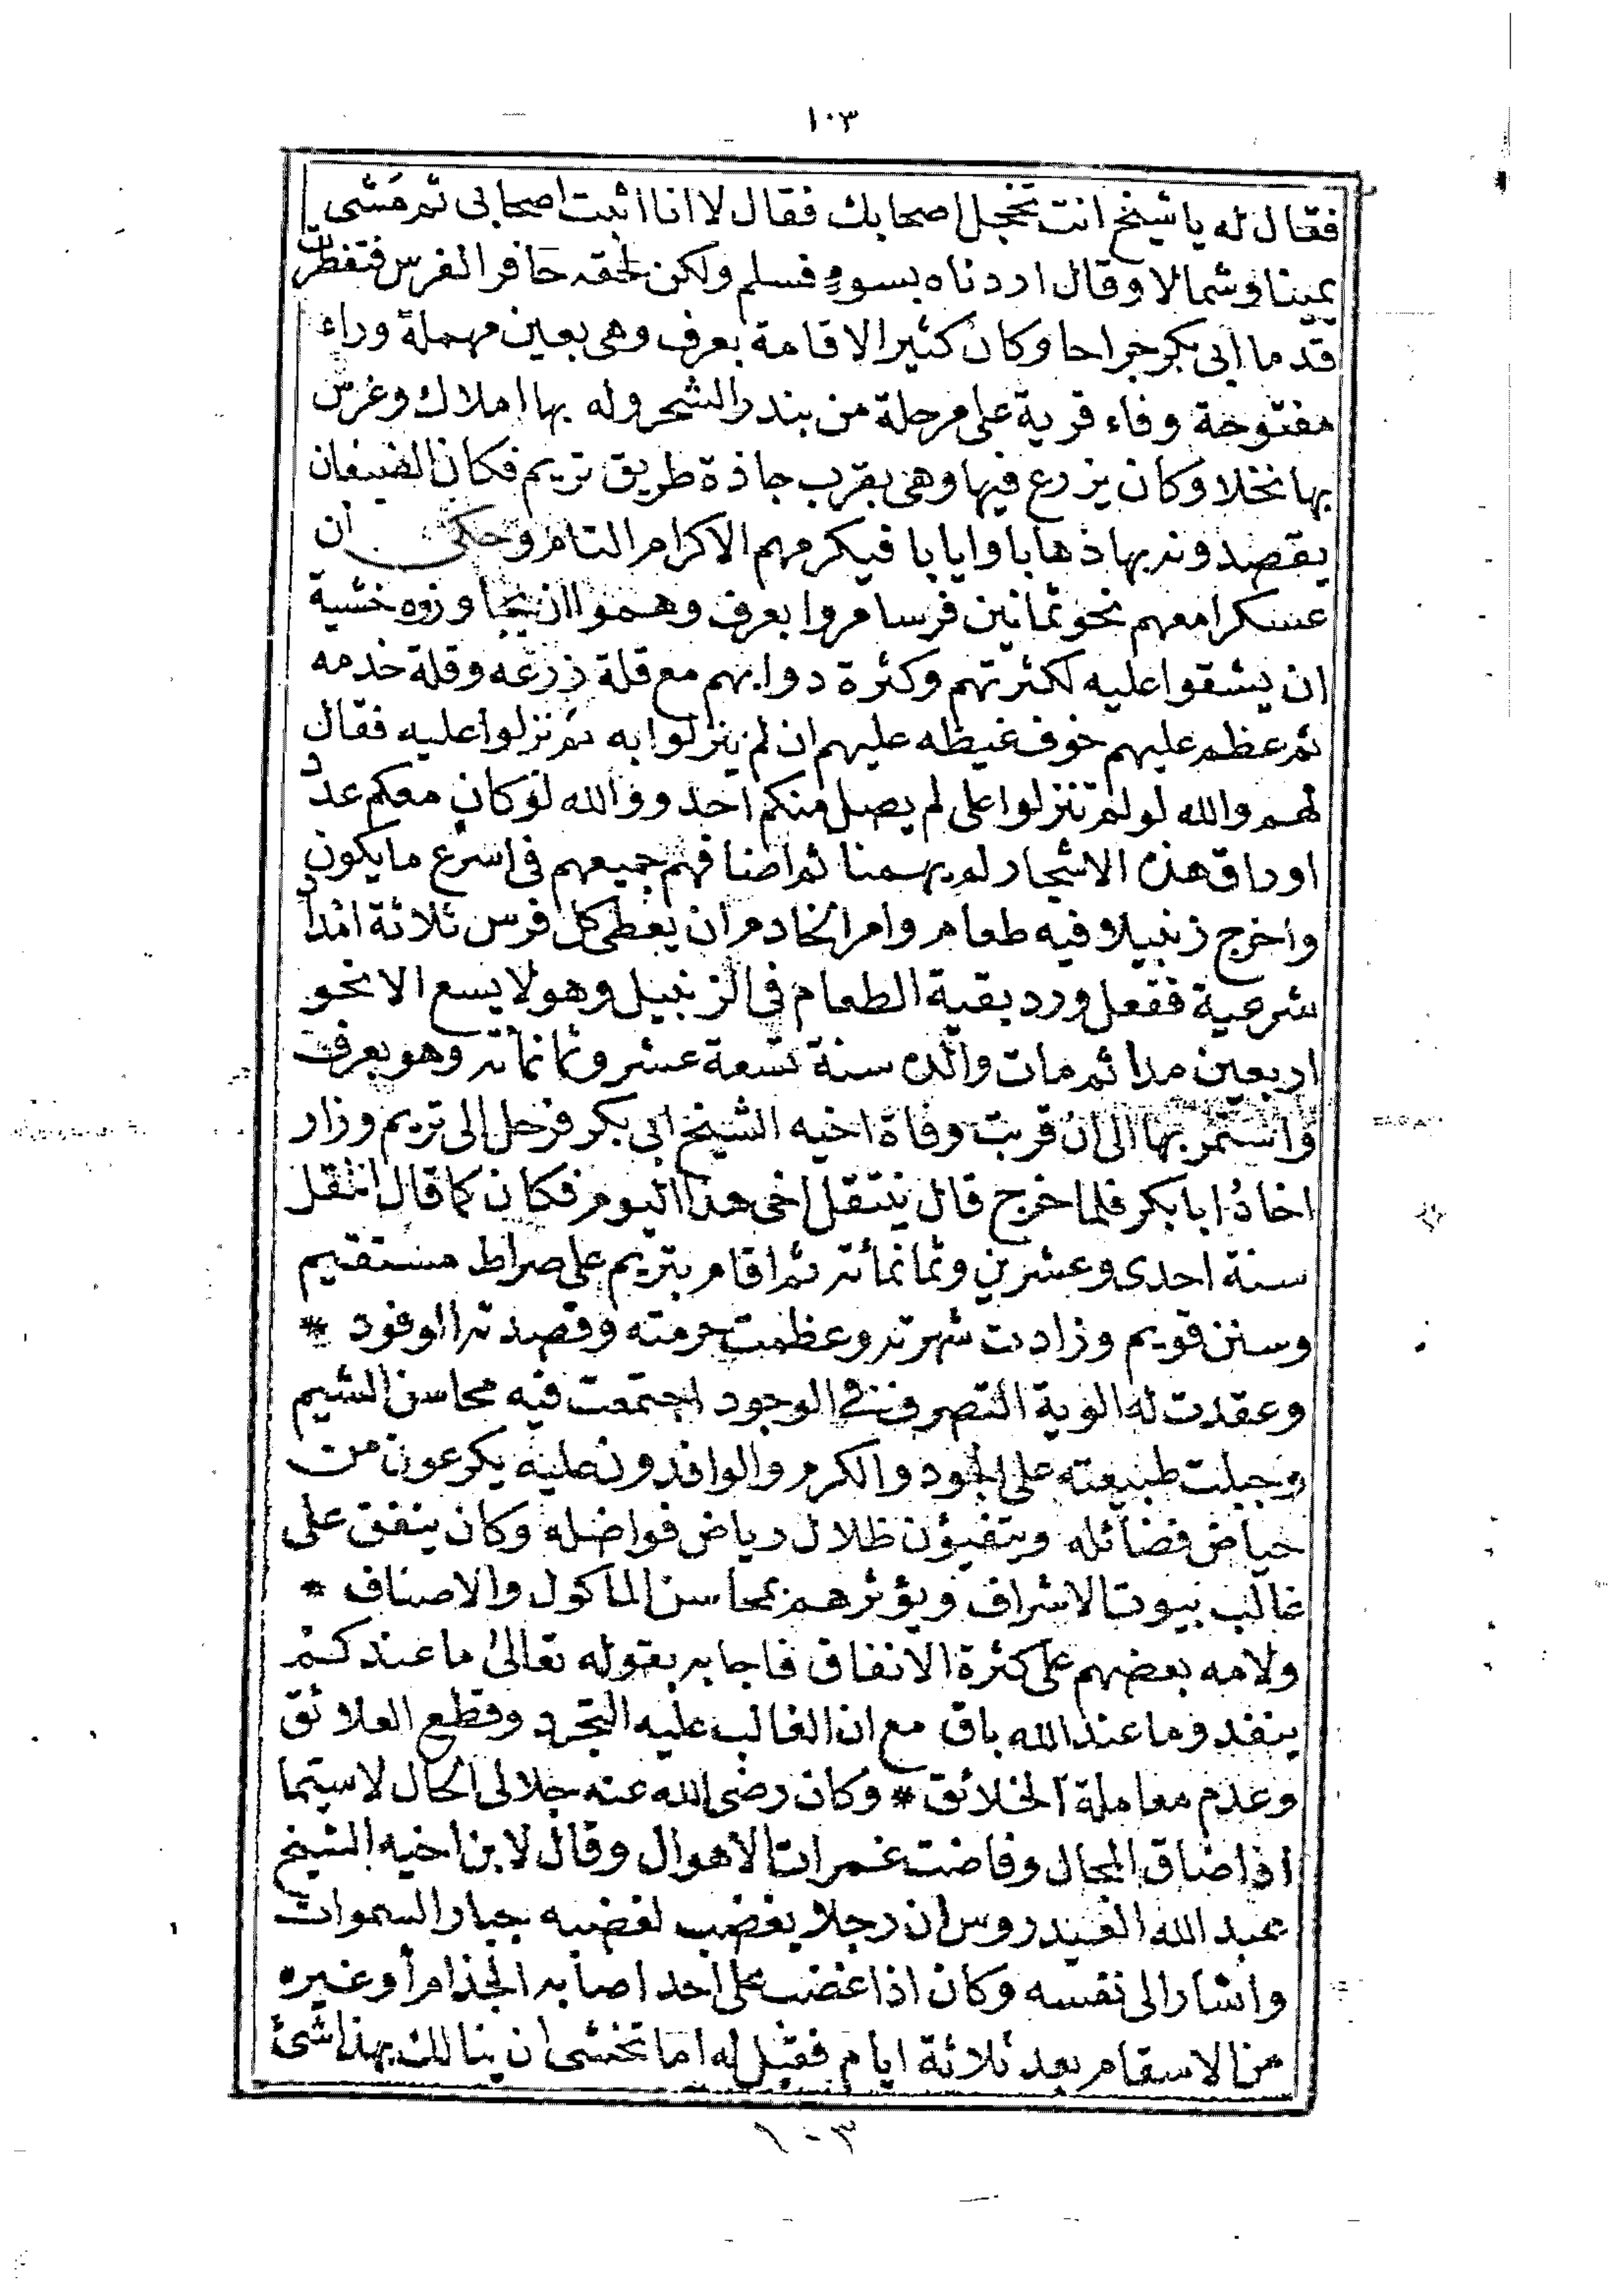 ١٠٣
فقال له يا شيخ انت تخجل اصحابك فقال لا انا اثبت اصحابى ثم مَشى
يمينا وشمالا وقال اردناه بسوءٍ فسلم ولكن لحقه حافر الفرس فتفطرت
قدما ابى بكر جراحا وكان كثير الاقامة بعرف وهى بعين مهملة وراء
مفتوحة وفاء قرية على مرحلة من بندر الشحر وله بها املاك وغرس
بها نخلا وكان يزرع فيها وهى بقرب جادة طريق تريم فكان الضيفان
يقصدونه بها ذهابا وايابا فيكرمهم الاكرام التام وحكى ان
عسكرا معهم نحو ثمانين فرسا مروا بعرف وهموا ان يتجاوزوه خشية
ان يشقوا عليه لكثرتهم وكثرة دوابهم مع قلة زرعه وقلة خدمه
ثم عظم عليهم خوف غيظه عليهم ان لم ينزلوا به ثم نزلوا عليه فقال
لهم والله لو لم تنزلوا على لم يصل منكم احد ووالله لو كان معكم عدد
اوراق هذه الاشجار لم يهمنا ثم اضافهم جميعهم فى اسرع ما يكون
واخرج زنبيلا فيه طعام وامر الخادم ان يعطى كل فرس ثلاثة امداد
شرعية ففعل ورد بقية الطعام فى الزنبيل وهو لا يسع الا نحو
اربعين مدا ثم مات والده سنة تسعة عشر وثمانمائة وهو بعرف
واستمر بها الى ان قربت وفاة اخيه الشيخ ابى بكر فرحل الى تريم وزار
اخاهُ ابا بكر فلما خرج قال ينتقل اخى هذا اليوم فكان كما قال انتقل
سنة احدى وعشرين وثمانمائة ثم اقام بتريم على صراط مستقيم
وسنن قويم وزادت شهرته وعظمت حرمته وقصدته الوفود *
وعقدت له الوية التصرف فى الوجود اجتمعت فيه محاسن الشيم
وجبلت طبيعته على الجود والكرم والوافدون عليه يكرعون من
حياض فضائله ويتفيؤن ظلال رياض فواضله وكان ينفق على
غالب بيوت الاشراف ويؤثرهم بمحاسن الماكول والاصناف *
ولامه بعضهم على كثرة الانفاق فاجابه بقوله تعالى ما عندكم
ينفد وما عند الله باق مع ان الغالب عليه التجرد وقطع العلائق
وعدم معاملة الخلائق * وكان رضى الله عنه جلالى الحال لاسيّما
اذا ضاق المجال وفاضت غمرات الاهوال وقال لابن اخيه الشيخ
عبد الله العيدروس ان رجلا يغضب لغضبه جبار السموات
واشار الى نفسه وكان اذا غضب على احد اصابه الجذام أو غيره
من الاسقام بعد ثلاثة ايام فقيل له اما تخشى ان ينالك بهذا شئ
١٠٣